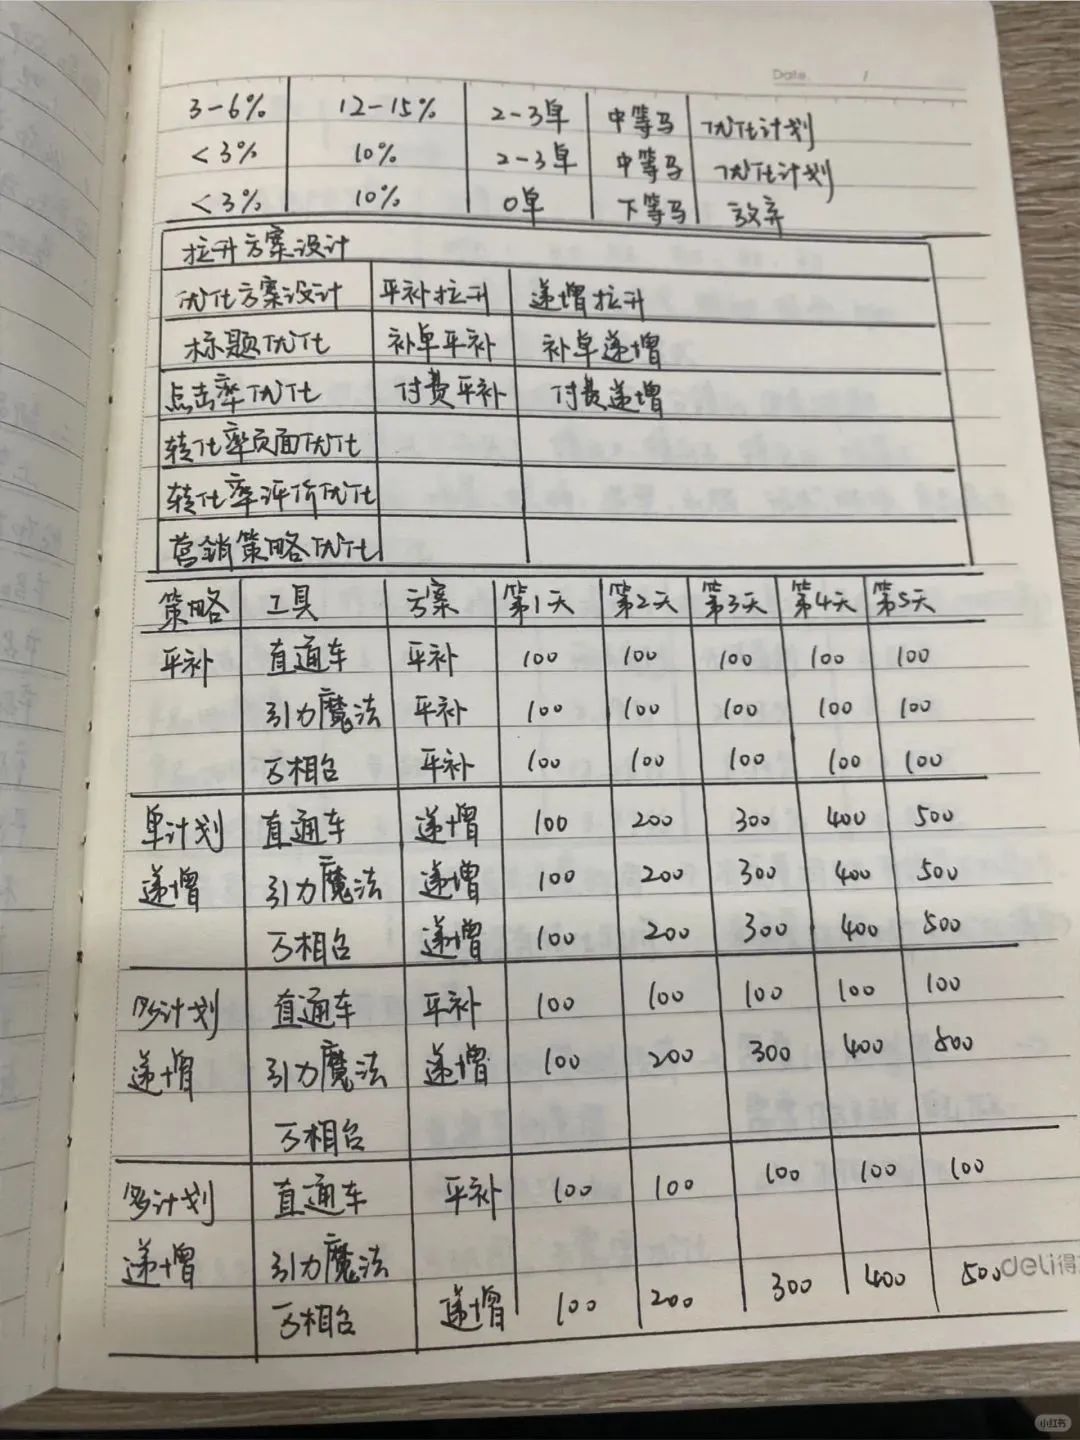 Date. /
3-6% 12-15% 2-3单 中等马 优化计划
<3% 10% 2-3单 中等马 优化计划
<3% 10% 0单 下等马 放弃
拉升方案设计
优化方案设计 平补拉升 递增拉升
标题优化 补单平补 补单递增
点击率优化 付费平补 付费递增
转化率页面优化
转化率评价优化
营销策略优化
策略 工具 方案 第1天 第2天 第3天 第4天 第5天
平补 直通车 平补 100 100 100 100 100
引力魔法 平补 100 100 100 100 100
万相台 平补 100 100 100 100 100
单计划 直通车 递增 100 200 300 400 500
递增 引力魔法 递增 100 200 300 400 500
万相台 递增 100 200 300 400 500
计划 直通车 平补 100 100 100 100 100
递增 引力魔法 递增 100 200 300 400 500
万相台
计划 直通车 平补 100 100 100 100 100
递增 引力魔法
万相台 递增 100 200 300 400 500
deli得
小红书